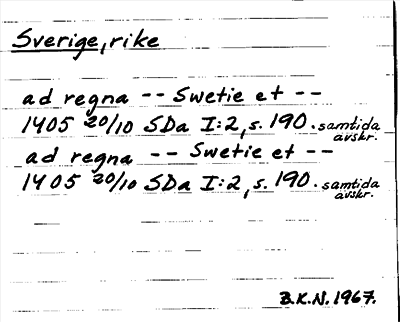 Sverige, rike
ad regna -- Swetie et --
1405 20/10 SDa I:2, s. 190. samtida avskr.
ad regna -- Swetie et --
1405 20/10 SDa I:2, s. 190. samtida avskr.
B.K.N. 1967.